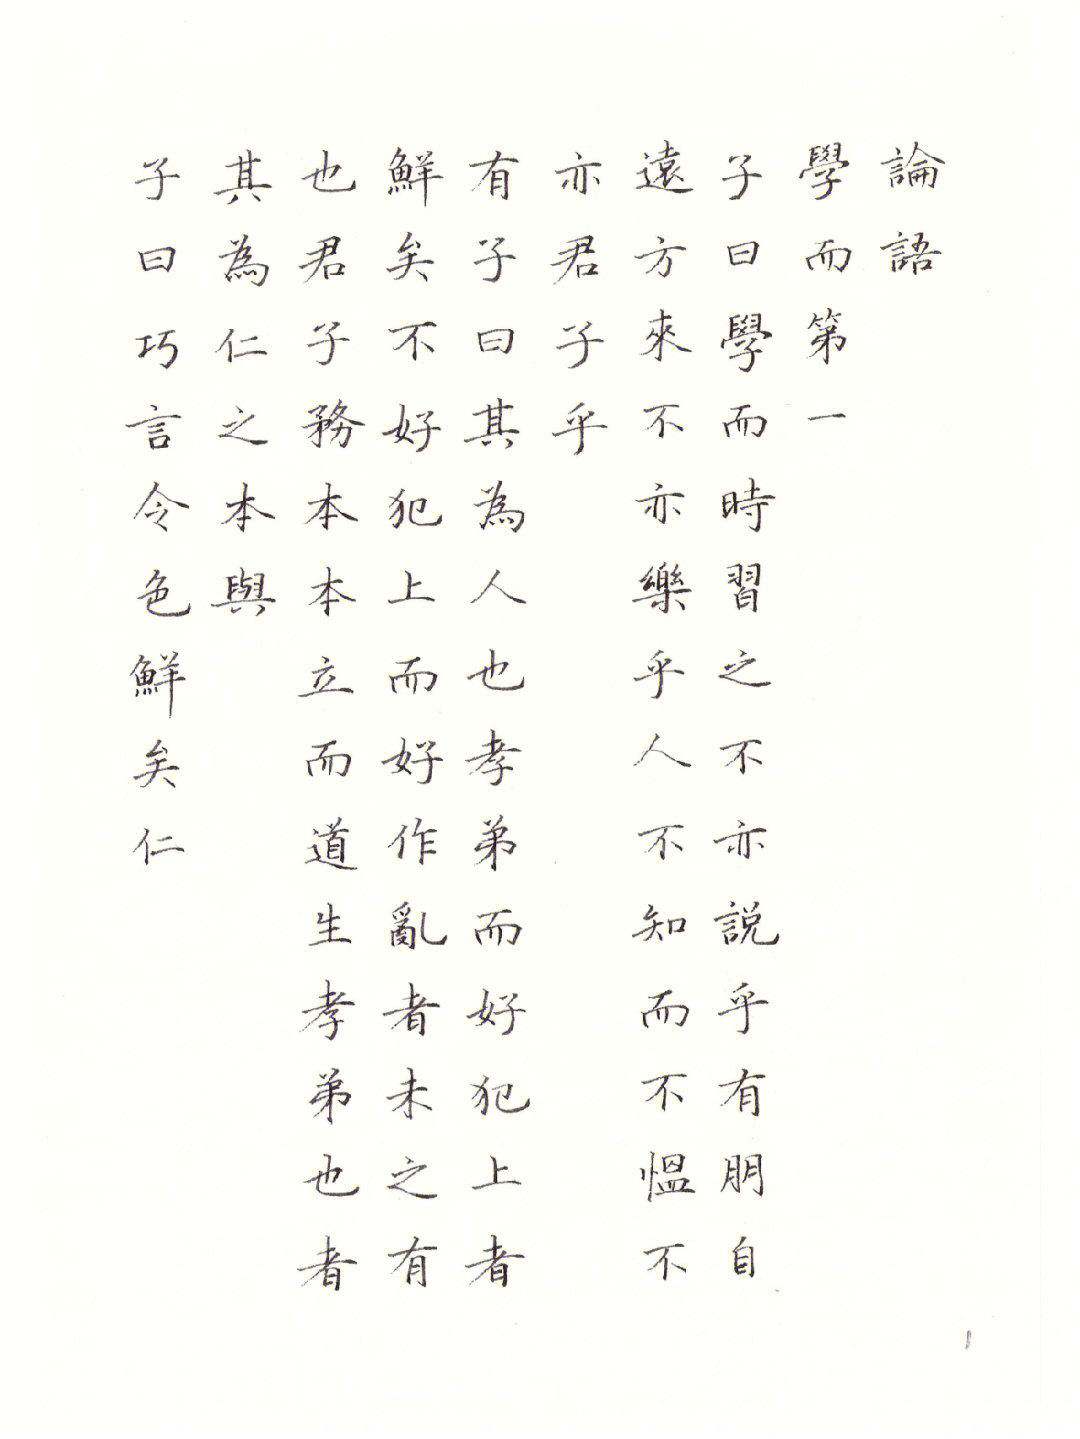 論語
學而第一
子曰學而時習之不亦説乎有朋自
遠方來不亦樂乎人不知而不愠不
亦君子乎
有子曰其為人也孝弟而好犯上者
鮮矣不好犯上而好作亂者未之有
也君子務本本立而道生孝弟也者
其為仁之本與
子曰巧言令色鮮矣仁
1